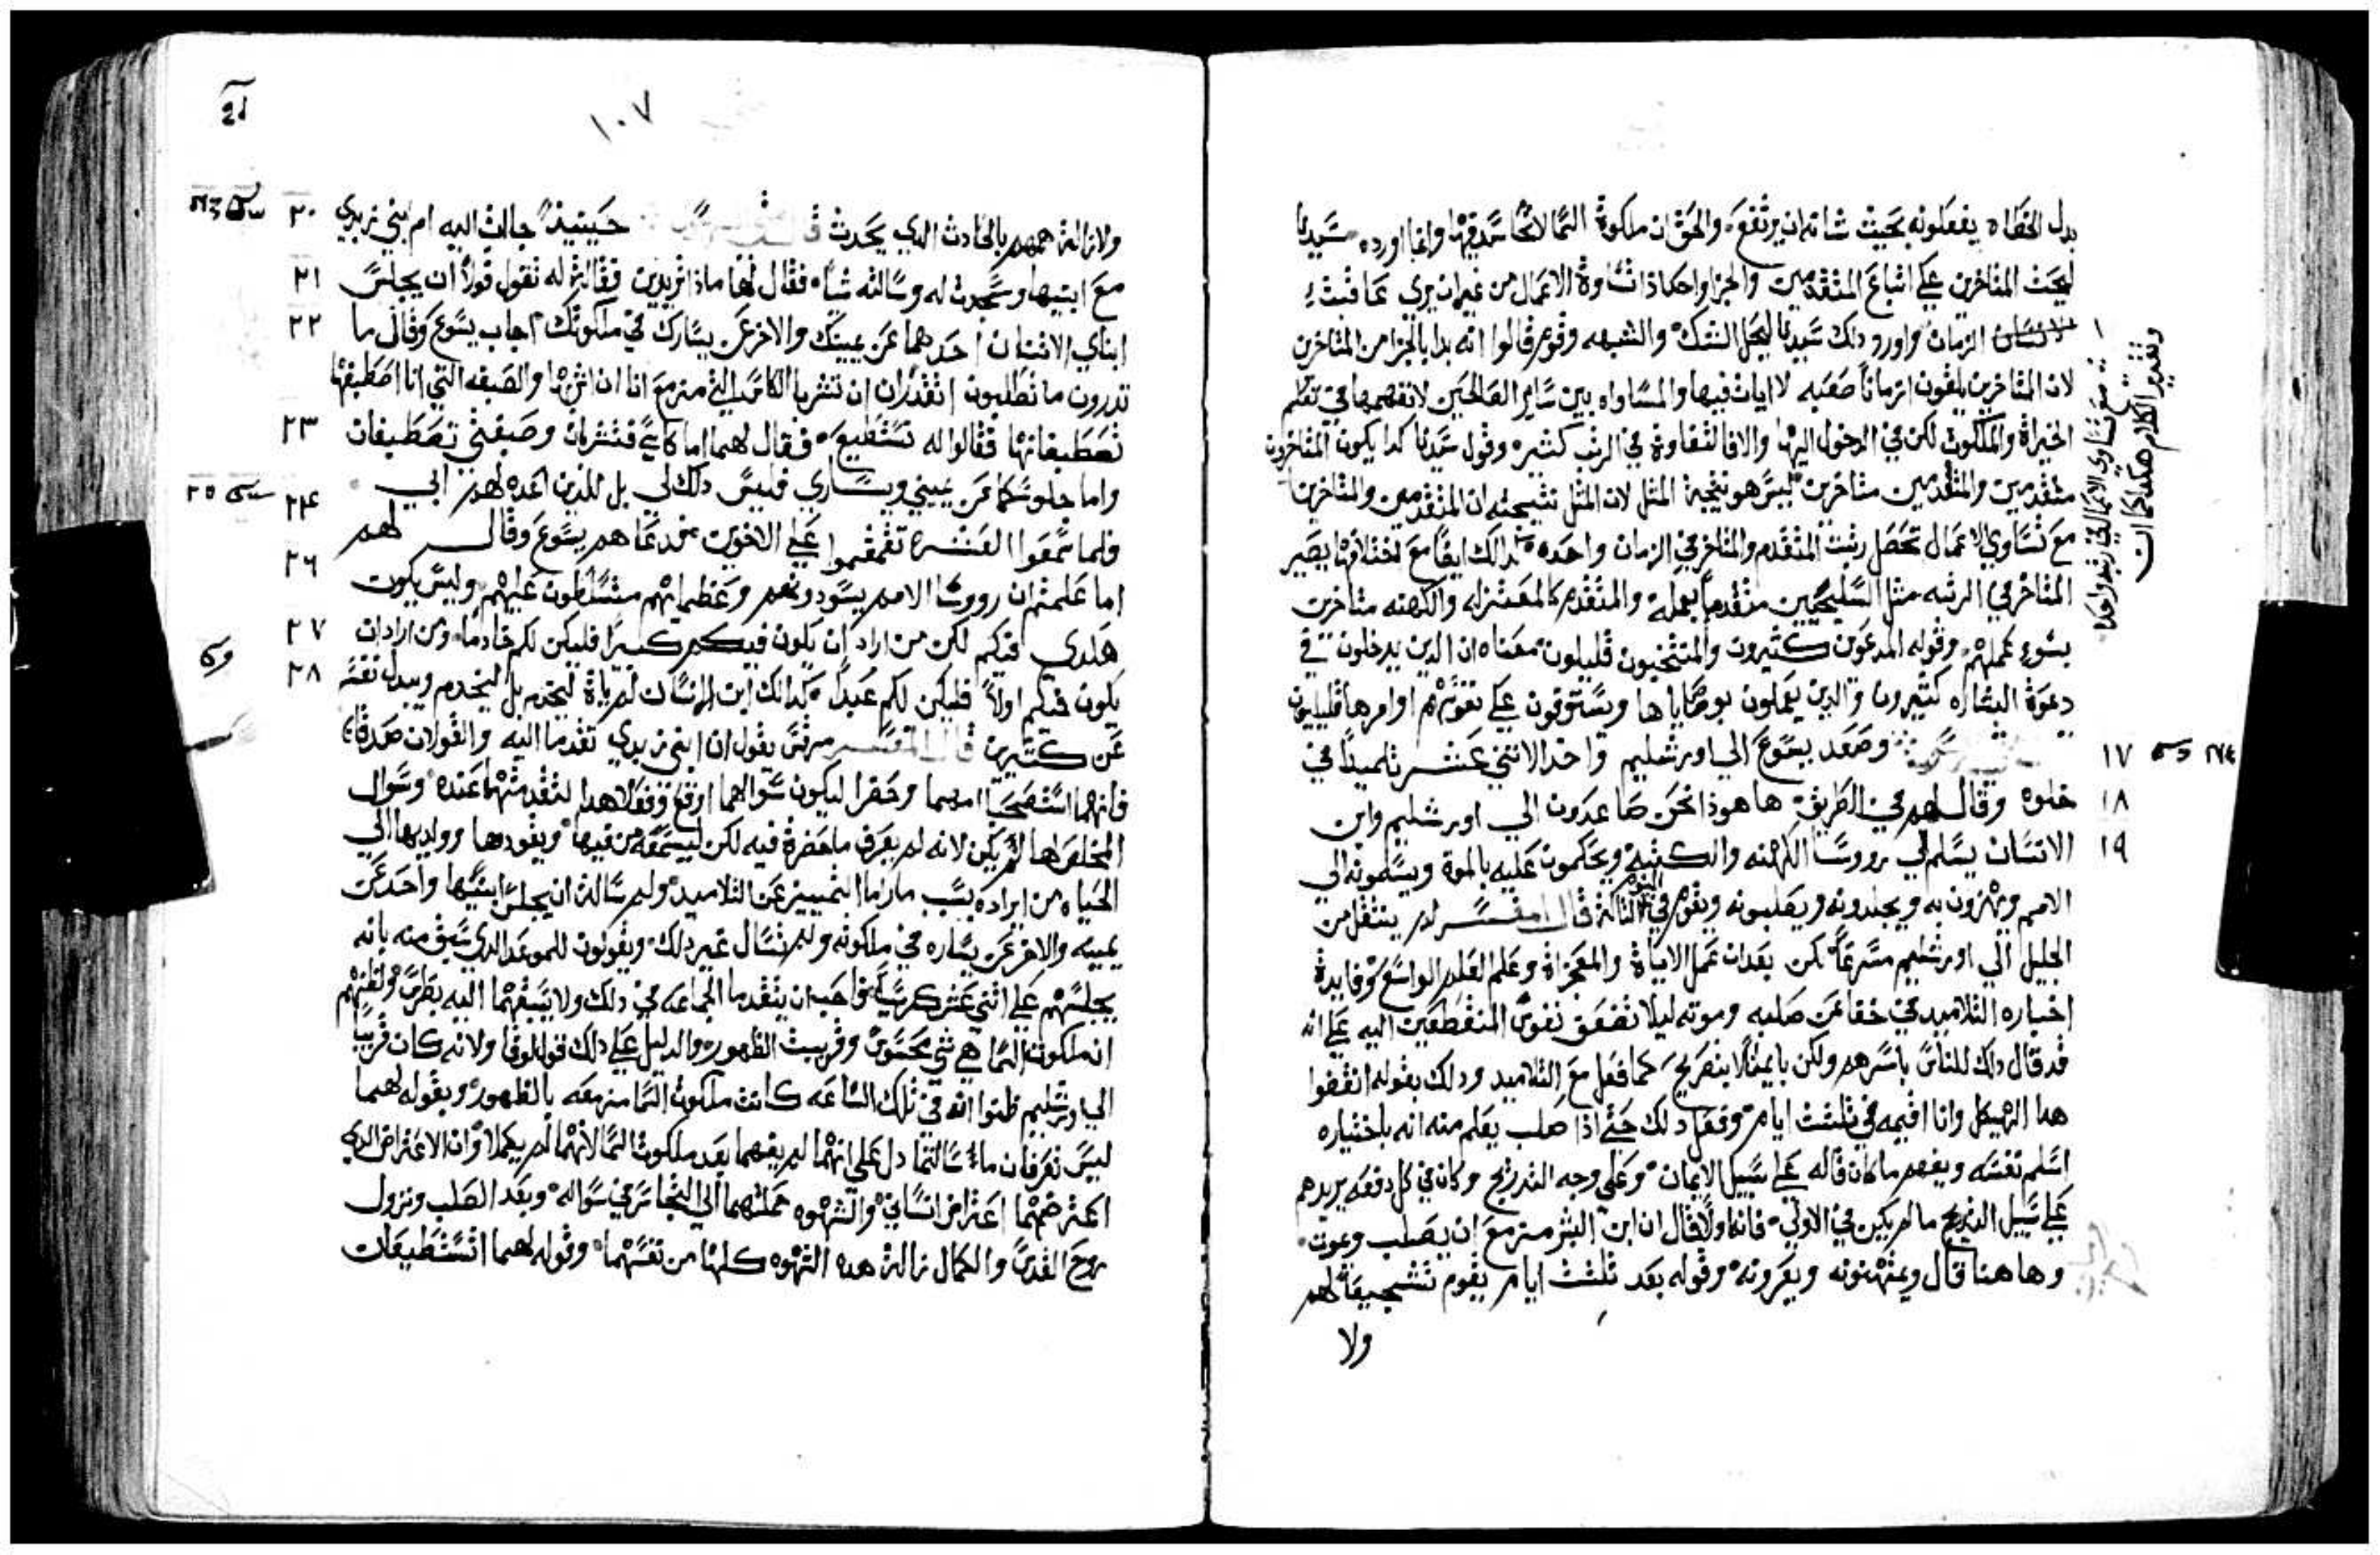 بدل الخطاه يفعلونه بحيث شاته ان يرتفع والحق ان ملكوة السما لا تحاسد فيها وانما اورده سيدنا
ليحث المتاخرين علي اتباع المتقدمين والجزا واحد اذا تساوة الاعمال من غير ان يري
الزمان واورد دلك سيدنا ليحل الشك والشبهه وقوم قالوا انه بدا بالجزا من المتاخرين
لان المتاخرين يلقون ازمانا صعبه لا ايات فيها والمساواه بين ساير الصالحين لا نفهمها في
الخيراة والملكوت لكن في الدخول اليها والا فالتفاوة في الرتب كثيره وقول سيدنا كدا يكون المتاخرون
متقدمين والمتقدمين متاخرين ليس هو نتيجة المثل لان المثل نتيجته ان المتقدمين والمتاخرين
مع تساوي الاعمال تحصل رتبت المتقدم والمتاخر في الزمان واحده كدالك ايضا مع اختلافها يصير
المتاخر في الرتبه مثل السليحيين متقدما بعمله والمتقدم كالمعتزله والكهنه متاخرين
بسوء عملهم وقوله المدعوين كثيرون والمنتخبون قليلون معناه ان الدين يدخلون في
دعوة البشاره كثيرون والدين يعملون بوصاياها ويستوقون علي نفوسهم اوامرها قليليون
وصعد يسوع الي اورشليم واخد الاثني عشر تلميدا في
١٧
خلوه وقال لهم في الطريق ها هودا نحن صاعدون الي اورشليم وابن
١٨
الانسان يسلم الي رووسا الكهنه والكتبه ويحكمون عليه بالموة ويسلمونه الي
١٩
الامم ويهزون به ويجلدونه ويصلبونه ويقوم في اليوم التالث قال المفسر لم ينتقل من
الجليل الي اورشليم مسرعا لكن بعد ان عمل الاياة والمعجزاة وعلم العلم الواسع وفايدة
اخباره التلاميد في خفا عن صلبه وموته ليلا تضعف نفوس المنقطعين اليه علي انه
قد قال دلك للناس باسرهم ولكن بايما لا بتصريح كما فعل مع التلاميد ودلك بقوله انقضوا
هدا الهيكل وانا اقيمه في تلتت ايام وفعل دلك حتي ادا صلب يعلم منه انه باختياره
اسلم نفسه ويفهم ما كان قاله علي سبيل الايمان وعلي وجه التدريج وكان في كل دفعه يزيدهم
علي سبيل التدريج ما لم يكن في الاولي فانه اولا قال ان ابن البشر مزمع ان يصلب ويموت
وها هنا قال ويمتهنونه ويعرونه وقوله بعد تلتت ايام يقوم تشجيعا لهم
ولا
وتقدير الكلام هكدا كما ان
مع تساوي الاعمال في رتبه واحده
١٠٧
ولازالة همهم بالحادث الدي يحدث حينيذ جاات اليه ام ابني زبدي
٢٠
مع ابنيها وسجدت له وسالته شيا فقال لها مادا تريدين فقالت له تقول قولا ان يجلس
٢١
ابناي الاثنان احدهما عن يمينك والاخر عن يسارك في ملكوتك اجاب يسوع وقال ما
٢٢
تدرون ما تطلبون اتقدران ان تشربا الكاس التي مزمع انا ان اشربها والصبغه التي انا اصطبغها
تصطبغانها فقالوا له نستطيع فقال لهما اما كاسي فتشربان وصبغتي تصطبغان
٢٣
واما جلوسكما عن يميني ويساري فليس دلك لي بل للدين اعده لهم ابي
فلما سمعوا العشره تقمقموا علي الاخوين فدعاهم يسوع وقال لهم
٢٤
اما علمتم ان رووسا الامم يسودونهم وعظمايهم متسلطون عليهم وليس يكون
٢٦
هكدي فيكم لكن من اراد ان يكون فيكم كبيرا فليكن لكم خادما ومن اراد ان
٢٧
يكون فيكم اولا فليكن لكم عبدا كدالك ابن الانسان لم ياة ليخدم بل ليخدم ويبدل نفسه
٢٨
عن كثيرين قال المفسر مرقس يقول ان ابني زبدي تقدما اليه والقولان صدقا
فانهما استصحبا امهما وحضرا ليكون سوالهما اوقع وفعلا هدا لتقدمتهما عنده وسوال
المخلص لها لم يكن لانه لم يعرف ما حضرة فيه لكن ليسمعه من فيها ويقودها وولديها الي
الحياه من ايراده بسب ما راما التمييز عن التلاميد ولم سالة ان يجلس ابنيها واحد عن
يمينه والاخر عن يساره في ملكوته ولم تسال غير دلك ويقولون للموعد الدي سبق منه بانه
يجلسهم علي اثني عشر كرسيا فواجب ان يتقدما الجماعه في دلك ولا يسبقهما اليه بطرس ولظنهم
ان ملكوة السما هي شي محسوس وقريبت الظهور والدليل علي دلك قول لوقا ولانه كان قريبا
الي اورشليم ظنوا انه في تلك الساعه كانت ملكوت السما مزمعه بالظهور وبقوله لهما
ليس تعرفان ما سالتما دل علي انهما لم يفهما بعد ملكوت السما لانهما لم يكملا وان الاعتراض الدي
اعترضهما اعتراض انساني والشهوه حملتهما الي التجاسر في سواله وبعد الصلب ونزول
روح القدس والكمال زالة هده الشهوه كلها من نفسهما وقوله لهما اتستطيعان